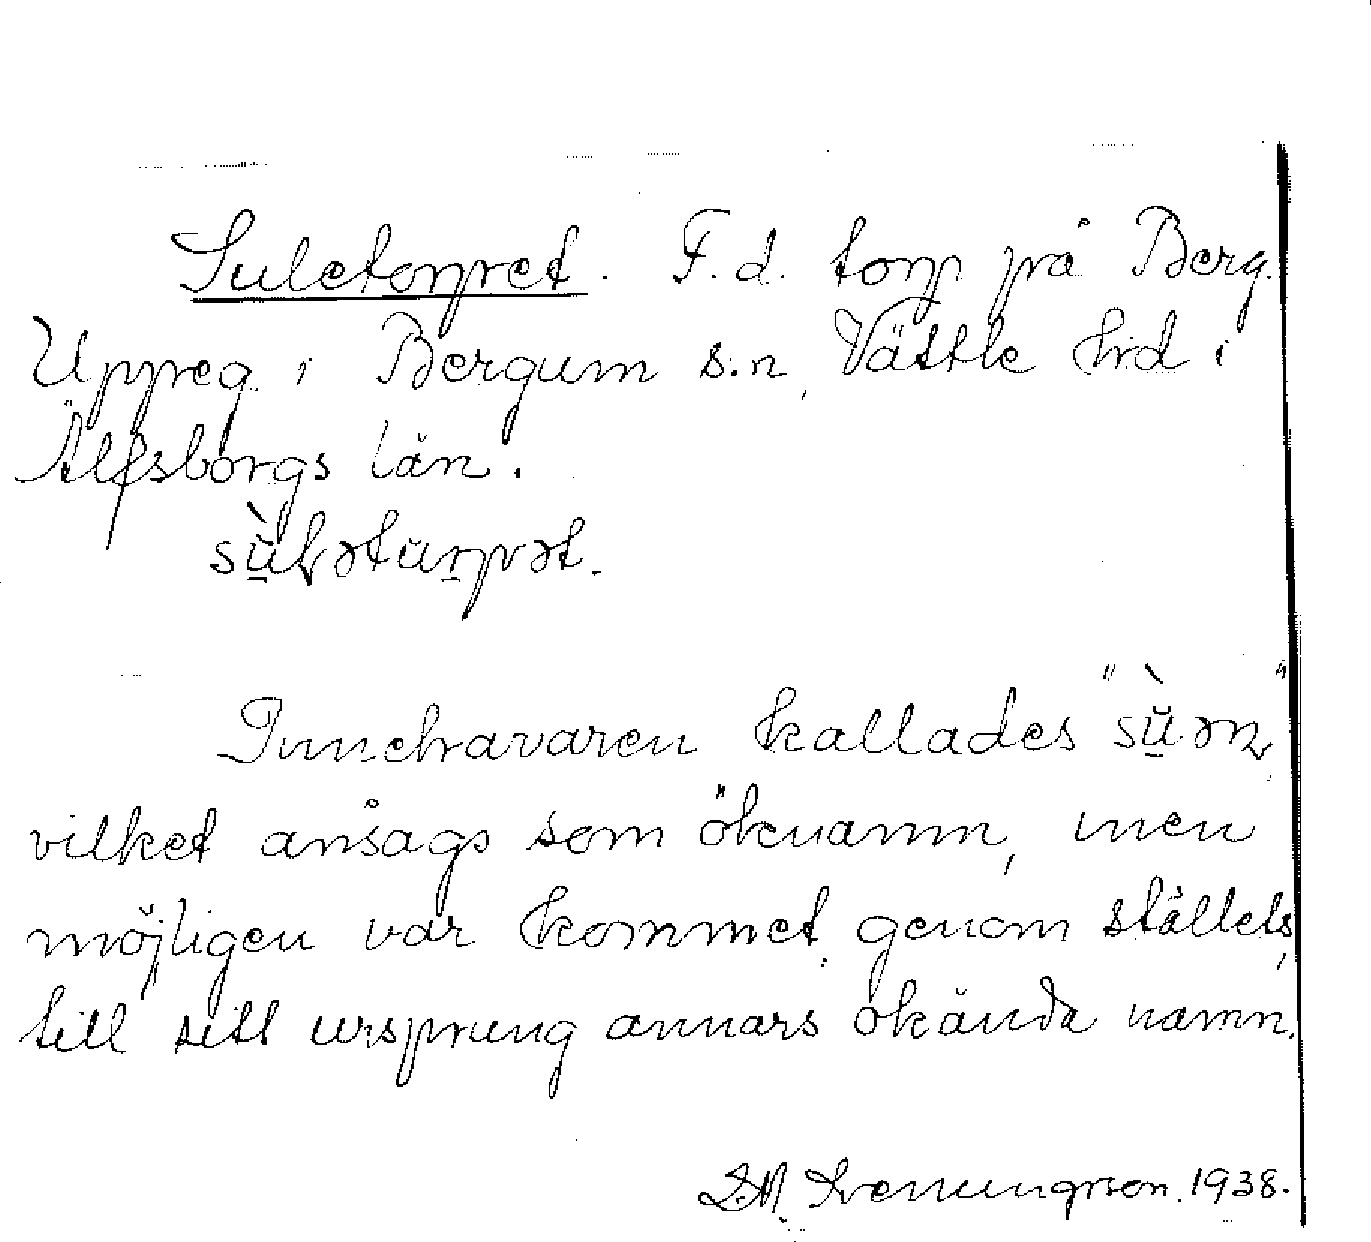 Suletorpet. F.d. torp på Berg.
Uppeg. i Bergum s:n, Vättle hrd i
Älfsborgs län.
sùləturpət.
Innehavaren kallades "sùən"
vilket ansågs som öknamn, men
möjligen var kommet genom ställets,
till sitt ursprung annars okända namn.
1938.